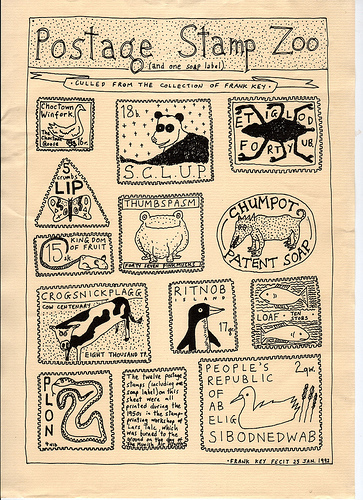 Postage Stamp Zoo
(and one soap label)
· CULLED FROM THE COLLECTION OF FRANK KEY ·
ChocTown
Winfork
The
Choctaw
Goose
16r.
18h.
S.C.L.U.P.
ET IGLOD
FORTY UB.
5
crumbs
LIP
THUMBSPASM
FORTY SEVEN
CHUMPOT
PATENT SOAP
15
KINGDOM
OF FRUIT
CROGSNICKPLAGG
COW CENTENARY
EIGHT THOUSAND
RITNOB
ISLAND
17
LOAF ·
TEN
PLON
The twelve postage
stamps (including one
soap label) on this
sheet were all
printed during the
1950s in the stamp
printing workshop of
Lars Talc, which
was burned to the
ground on the day of
PEOPLE'S
REPUBLIC
OF
AB
ELIG
SIBODNEDWAB
· FRANK KEY FECIT 25 JAN. 1992